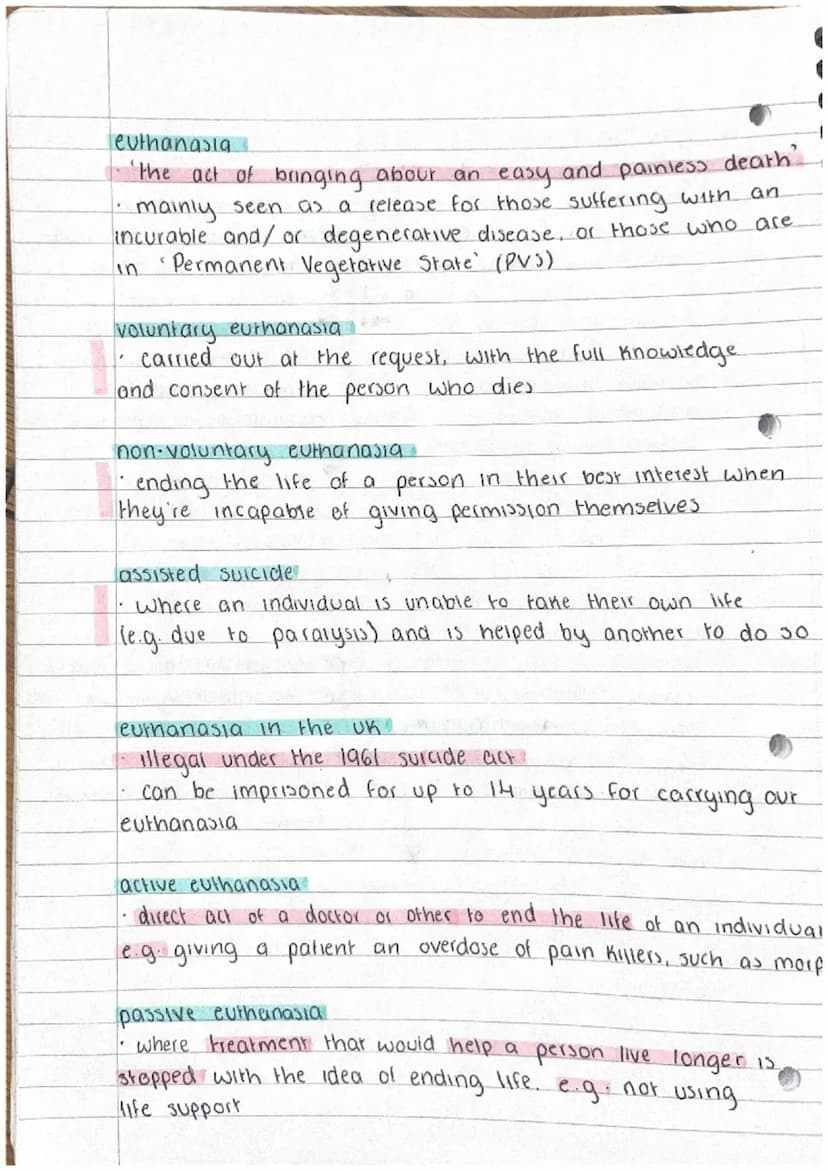 euthanasia
· 'the act of bringing about an easy and painless death'
· mainly seen as a release for those suffering with an
incurable and/or degenerative disease, or those who are
in 'Permanent Vegetative State' (PVS)
voluntary euthanasia
· carried out at the request, with the full knowledge
and consent of the person who dies
non-voluntary euthanasia
· ending the life of a person in their best interest when
they're incapable of giving permission themselves
assisted suicide
· where an individual is unable to take their own life
(e.g. due to paralysis) and is helped by another to do so
euthanasia in the UK
· illegal under the 1961 suicide act
· can be imprisoned for up to 14 years for carrying out
euthanasia
active euthanasia
· direct act of a doctor or other to end the life of an individual
e.g. giving a patient an overdose of pain killers, such as morp
passive euthanasia
· where treatment that would help a person live longer is
stopped with the idea of ending life. e.g. not using
life support